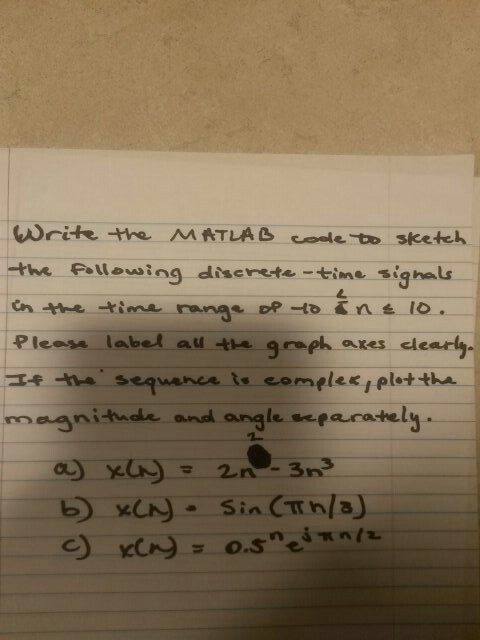 Write the MATLAB code to sketch
the following discrete-time signals
in the time range of -10 ≤ n ≤ 10.
Please label all the graph axes clearly.
If the sequence is complex, plot the
magnitude and angle separately.
a) x(n) = 2n² - 3n³
b) x(n) = Sin (πn/3)
c) x(n) = 0.5ⁿ e^jπn/2